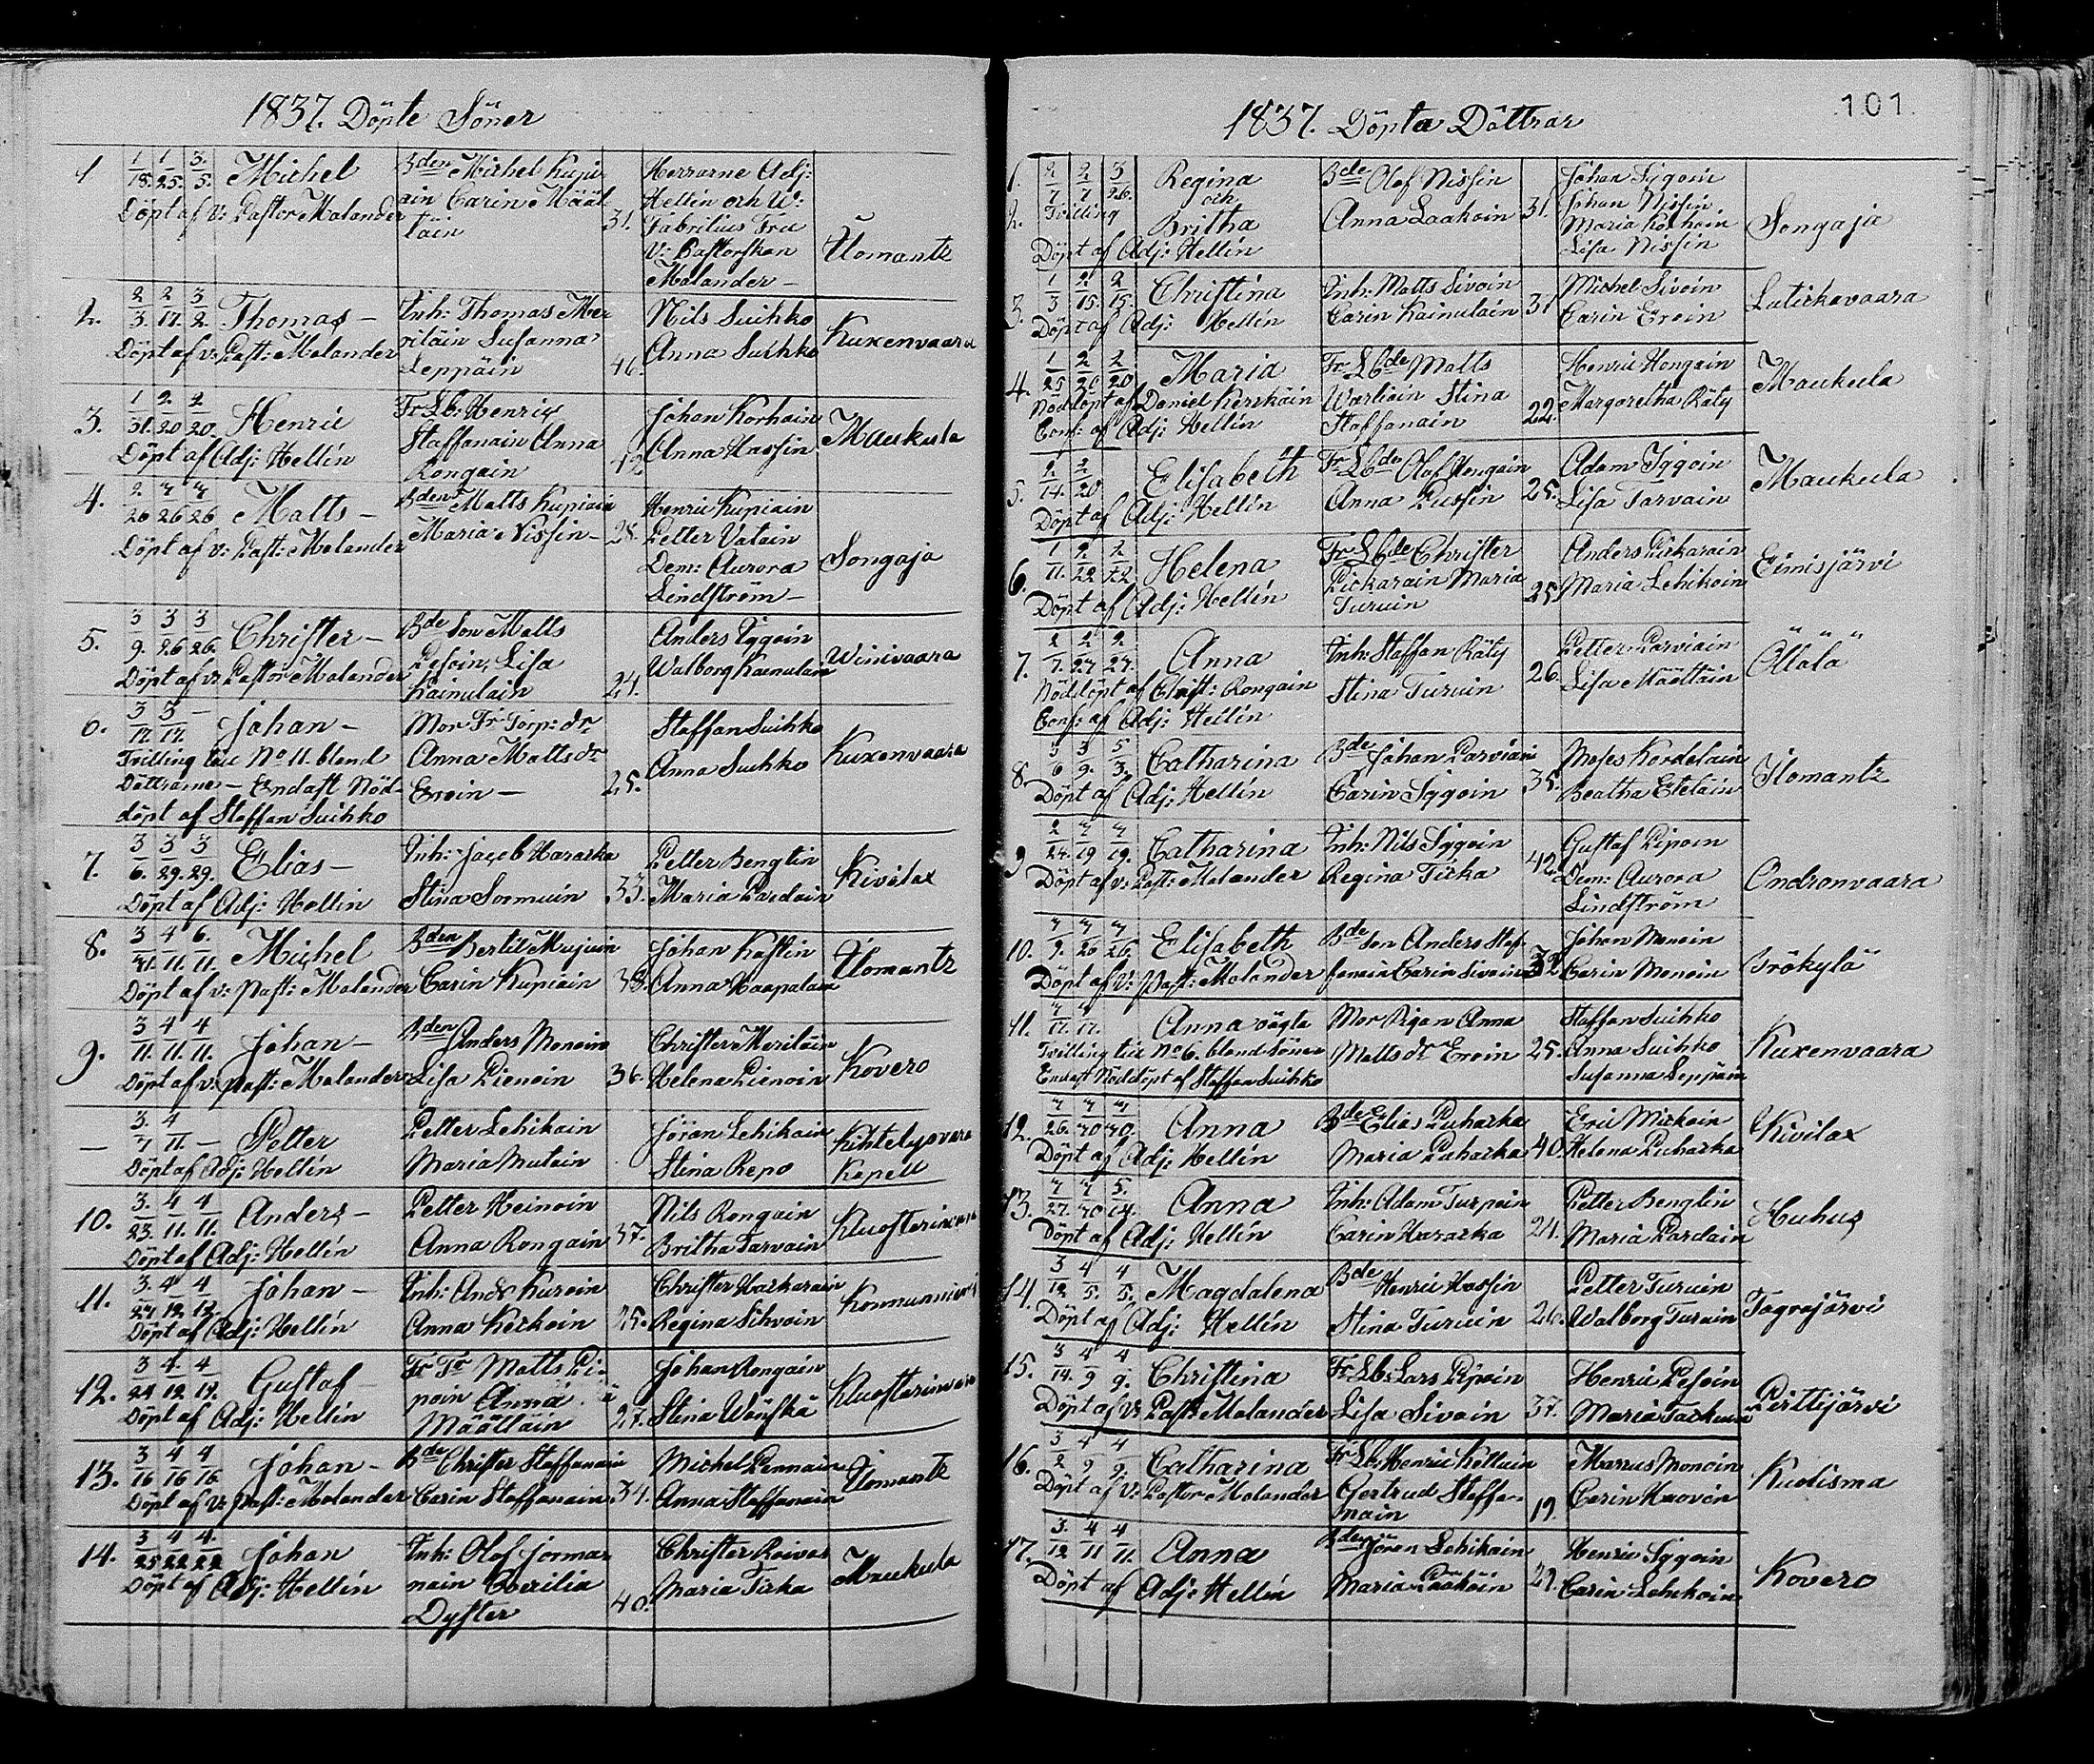 1837. Döpte Söner
1 1/18. 1/25. 3./5. Michel
Döpt af V: Pastor Molander
Bden Michel Kupi-
ain Carin Määt-
täin 31.
Herrarne Adj:
Hellin och W:
Fabritius Fru
V: Pastorskan
Molander –
Ilomantz
2. 2/3. 2/17. 3/2. Thomas –
Döpt af v: Past: Molander
Inh: Thomas Me-
riläin Susanna
Leppäin 46.
Nils Suihko
Anna Suihko
Kuxenvaara
3. 1/31. 2/20 2/20. Henric
Döpt af Adj: Hellin
Fr Lb: Henric
Staffanain Anna
Rongain 42.
Johan Korhain
Anna Hassin
Maukula
4. 2/26 Matts –
Döpt af v: Past: Molander
Bden Matts Kupiain
Maria Nissin – 28.
Henric Kupiain
Petter Vatain
Dem: Aurora
Lindström –
Songaja
5. 3/9. 3/26 3/26. Christer –
Döpt af v: Pastor Molander
Bde Son Matts
Pesoin, Lisa
Kainulain 24.
Anders Iggoin
Walborg Kainulain
Winivaara
6. 3/17. 3/17. – Johan –
Trilling till No 11. bland
Döttrarne – Endast Nöd-
döpt af Staffan Suihko
Mor Fr Torp: dr
Anna Matts dr
Eroin – 25.
Staffan Suihko
Anna Suihko
Kuxenvaara
7. 3/6. 3/29. 3/29. Elias –
Döpt af Adj: Hellin
Inh: Jacob Hararka
Stina Sormuin 33.
Petter Benglin
Maria Pardain
Kivilax
8. 3/31. 4/11. 6./11. Michel
Döpt af v: Past: Molander
Bden Bertil Mujuin
Carin Kupiain 38.
Johan Kastin
Anna Haapalain
Ilomantz
9. 3/11. 4/11. 4/11. Johan –
Döpt af v: Past: Molander
Bden Anders Monoin
Lisa Pienoin 36.
Christer Meriläin
Helena Pienoin
Kovero
– 3. 4/11 – Petter
Döpt af Adj: Hellin
Petter Lehikoin
Maria Mutain
Jöran Lehikoin
Stina Repo
Kihtelysvara
Kapell
10. 3./23. 4/11. 4/11. Anders –
Döpt af Adj: Hellin
Petter Heinoin
Anna Rongain 37.
Nils Rongain
Britha Tarvain
Kuosterinvara
11. 3./27. 4/12. 4/12. Johan –
Döpt af Adj: Hellin
Inh: And: Kuroin
Anna Kerkoin 25.
Christer Harkarain
Regina Sihvoin
12. 3/24 4./12. 4/12. Gustaf
Döpt af Adj: Hellin
Fr Tr Matts Pi-
poin Anna
Määttäin 27.
Johan Rongain
Stina Wänskä
Kuosterinvara
13. 3/16 4/16 4/16. Johan –
Döpt af V: Past: Molander
Bde Christer Staffanain
Carin Staffanain 34.
Michel Pennain
Anna Staffanain
Ilomantz
14. 3/25 4/22 4./22 Johan
Döpt af Adj: Hellin
Inh: Olof Jorma-
nain Caecilia
Dyster 40.
Christer Roivas
Maria Tirka
Maukula
1837. Döpta Döttrar
101.
1. 2/7 2/7 3/26. Regina
och
2. Tvilling Britha
Döpt af Adj: Hellin
Bde Olof Nissin
Anna Laakoin 31.
Johan Iggoin
Johan Nissin
Maria Korhoin
Lisa Nissin
Songaja
3. 1/3 2/15. 2/15. Christina
Döpt af Adj: Hellin
Inh: Matts Sivoin
Carin Kainulain 31
Michel Sivoin
Carin Eroin
Lutickavaara
4. 1/25 2/20 2/20 Maria
Nöddöpt af Daniel Kerskäin
Conf: af Adj: Hellin
Fr Lbde Matts
Warlioin Stina
Staffanain 22.
Henric Hongain
Margaretha Räty
Maukula
5. 2./14. 2/20 Elisabeth
Döpt af Adj: Hellin
Fr Lbde Olof Hongain
Anna Pussin 25.
Adam Iggoin
Lisa Tarvain
Maukula
6. 1/11. 2/22 2/22 Helena
Döpt af Adj: Hellin
Fr Lbde Christer
Pickarain Maria
Turuin 25.
Anders Pickarain
Maria Lehikoin
Eimisjärvi
7. 2/7. 2/27. 2./27. Anna
Nöddöpt af Christ: Rongain
Conf: af Adj: Hellin
Inh: Staffan Räty
Stina Turuin 26.
Petter Parviain
Lisa Määttäin
Ölläla
8. 3/6 3/9. 5/3. Catharina
Döpt af Adj: Hellin
Bde Johan Parviain
Carin Iggoin 35.
Moses Kordelain
Beatha Eteläin
Ilomantz
9 2/24. 3/19 3/19. Catharina
Döpt af v: Past: Molander
Inh: Nils Iggoin
Regina Tirka 42
Gustaf Piipoin
Dem: Aurora
Lindström
Ondronvaara
10. 3/9. 3/26 3/26. Elisabeth
Döpt af V: Past: Molander
Bde son Anders Staf-
fanain Carin Sivoin 32
Johan Monoin
Carin Monoin
Brökylä
11. 3/17. 3/17. Anna oägta
Trilling till No 6. bland Söner
Endast Nöddöpt af Staffan Suihko
Mor Pigan Anna
Matts dr Eroin 25.
Staffan Suihko
Anna Suihko
Susanna Leppäin
Kuxenvaara
12. 3/26. 3/30 3/30. Anna
Döpt af Adj: Hellin
Bde Elias Puharka
Maria Puharka 40.
Eric Mickoin
Helena Puharka
Kivilax
13. 3/27. 3/30 Anna
Döpt af Adj: Hellin
Inh: Adam Turpein
Carin Hararka 24.
Petter Benglin
Maria Pardain
Huhus
14. 3/12 4/5. 4/5. Magdalena
Döpt af Adj: Hellin
Bde Henric Hassin
Stina Turuin 26.
Petter Turuin
Walborg Turuin
Tagrajärvi
15. 3/14. 4/9 4/9. Christina
Döpt af V: Past: Molander
Fr Lb: Lars Pipoin
Lisa Sivoin 37.
Henric Pesoin
Maria Tackuin
Pirttijärvi
16. 3/2 4/9 4/9. Catharina
Döpt af V: Pastor Molander
Fr Lb: Henric Kettuin
Gertrud Staffa-
nain 19.
Marcus Monoin
Carin Huovin
Kuolisma
17. 3./12 4/11 4/11. Anna
Döpt af Adj: Hellin
Bden Jöran Lehikoin
Maria Pääköin 29.
Henric Iggoin
Carin Lehikoin
Kovero